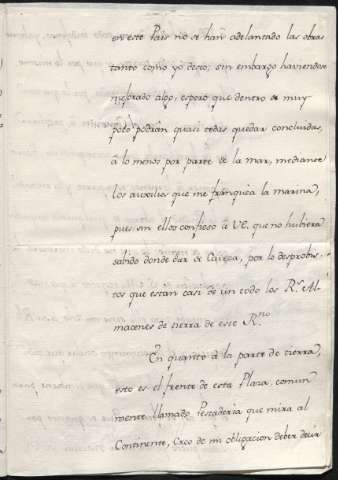 en este Pais no se han adelantado las obras
tanto como yo deseo, sin embargo haviendose
mejorado algo, espero que dentro de muy
poco podran quasi todas quedar concluidas,
à lo menos por parte de la mar, mediante
los auxilios que me franquea la marina,
pues sin ellos confieso à VE. que no hubiera
sabido donde dar de Caveza, por lo desprobis-
tos que estan casi de un todo los R.s Al-
macenes de tierra de este R.no
En quanto à la parte de tierra,
esto es el frente de esta Plaza, comun
mente llamado Pescaderia que mira al
Continente, Creo de mi obligacion deber decir